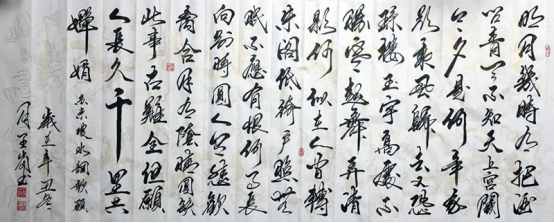 明月幾時有把酒
問青天不知天上宮闕
今夕是何年我
欲乘風歸去又恐
瓊樓玉宇高處不
勝寒起舞弄清
影何似在人間轉
朱閣低綺戶照無
眠不應有恨何事長
向別時圓人有悲歡
離合月有陰晴圓缺
此事古難全但願
人長久千里共
嬋娟 蘇東坡水調歌頭
歲在辛丑冬
月